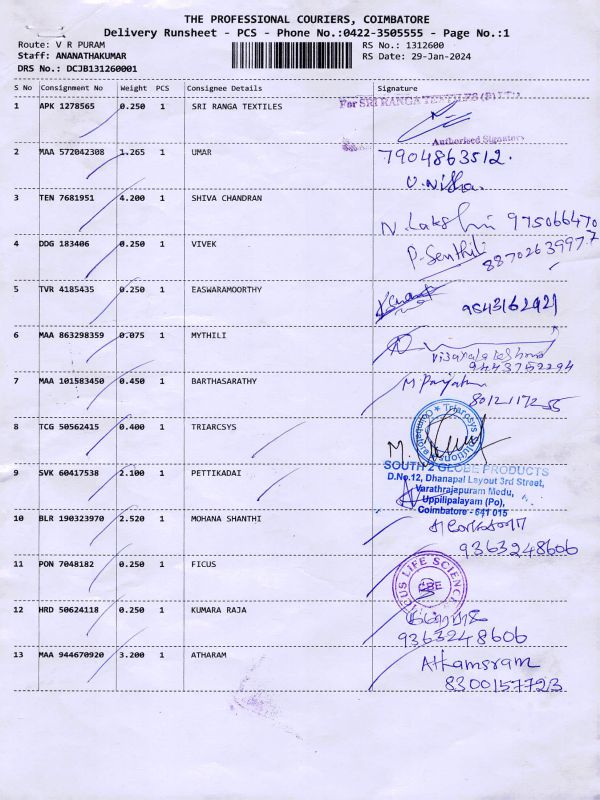 THE PROFESSIONAL COURIERS, COIMBATORE
Delivery Runsheet - PCS - Phone No.:0422-3505555 - Page No.:1
Route: V R PURAM
RS No.: 1312600
Staff: ANANATHAKUMAR
RS Date: 29-Jan-2024
DRS No.: DCJB131260001
S No Consignment No Weight PCS Consignee Details Signature
1 APK 1278565 0.250 1 SRI RANGA TEXTILES
For SRI RANGA TEXTILES (P) LTD.
Authorised Signatory
2 MAA 572042308 1.265 1 UMAR 7904863512.
U.Nisha.
3 TEN 7681951 4.200 1 SHIVA CHANDRAN
N. Lakshmi 975066470
4 DDG 183406 0.250 1 VIVEK P. Senthil
8870263997.7
5 TVR 4185435 0.250 1 EASWARAMOORTHY
9843162421
6 MAA 863298359 0.075 1 MYTHILI
9443752294
7 MAA 101583450 0.450 1 BARTHASARATHY M
80121117255
8 TCG 50562415 0.400 1 TRIARCSYS
Triarcsys Solutions
Coimbatore
M.
9 SVK 60417538 2.100 1 PETTIKADAI
SOUTH 2 GLOBE PRODUCTS
D.No.12, Dhanapal Layout 3rd Street,
Varathrajapuram Medu,
Uppilipalayam (Po),
Coimbatore - 641 015
10 BLR 190323970 2.520 1 MOHANA SHANTHI
9363248606
11 PON 7048182 0.250 1 FICUS
FICUS LIFE SCIENCE
CBE
12 HRD 50624118 0.250 1 KUMARA RAJA
9363248606
13 MAA 944670920 3.200 1 ATHARAM Athamsram
8300157723